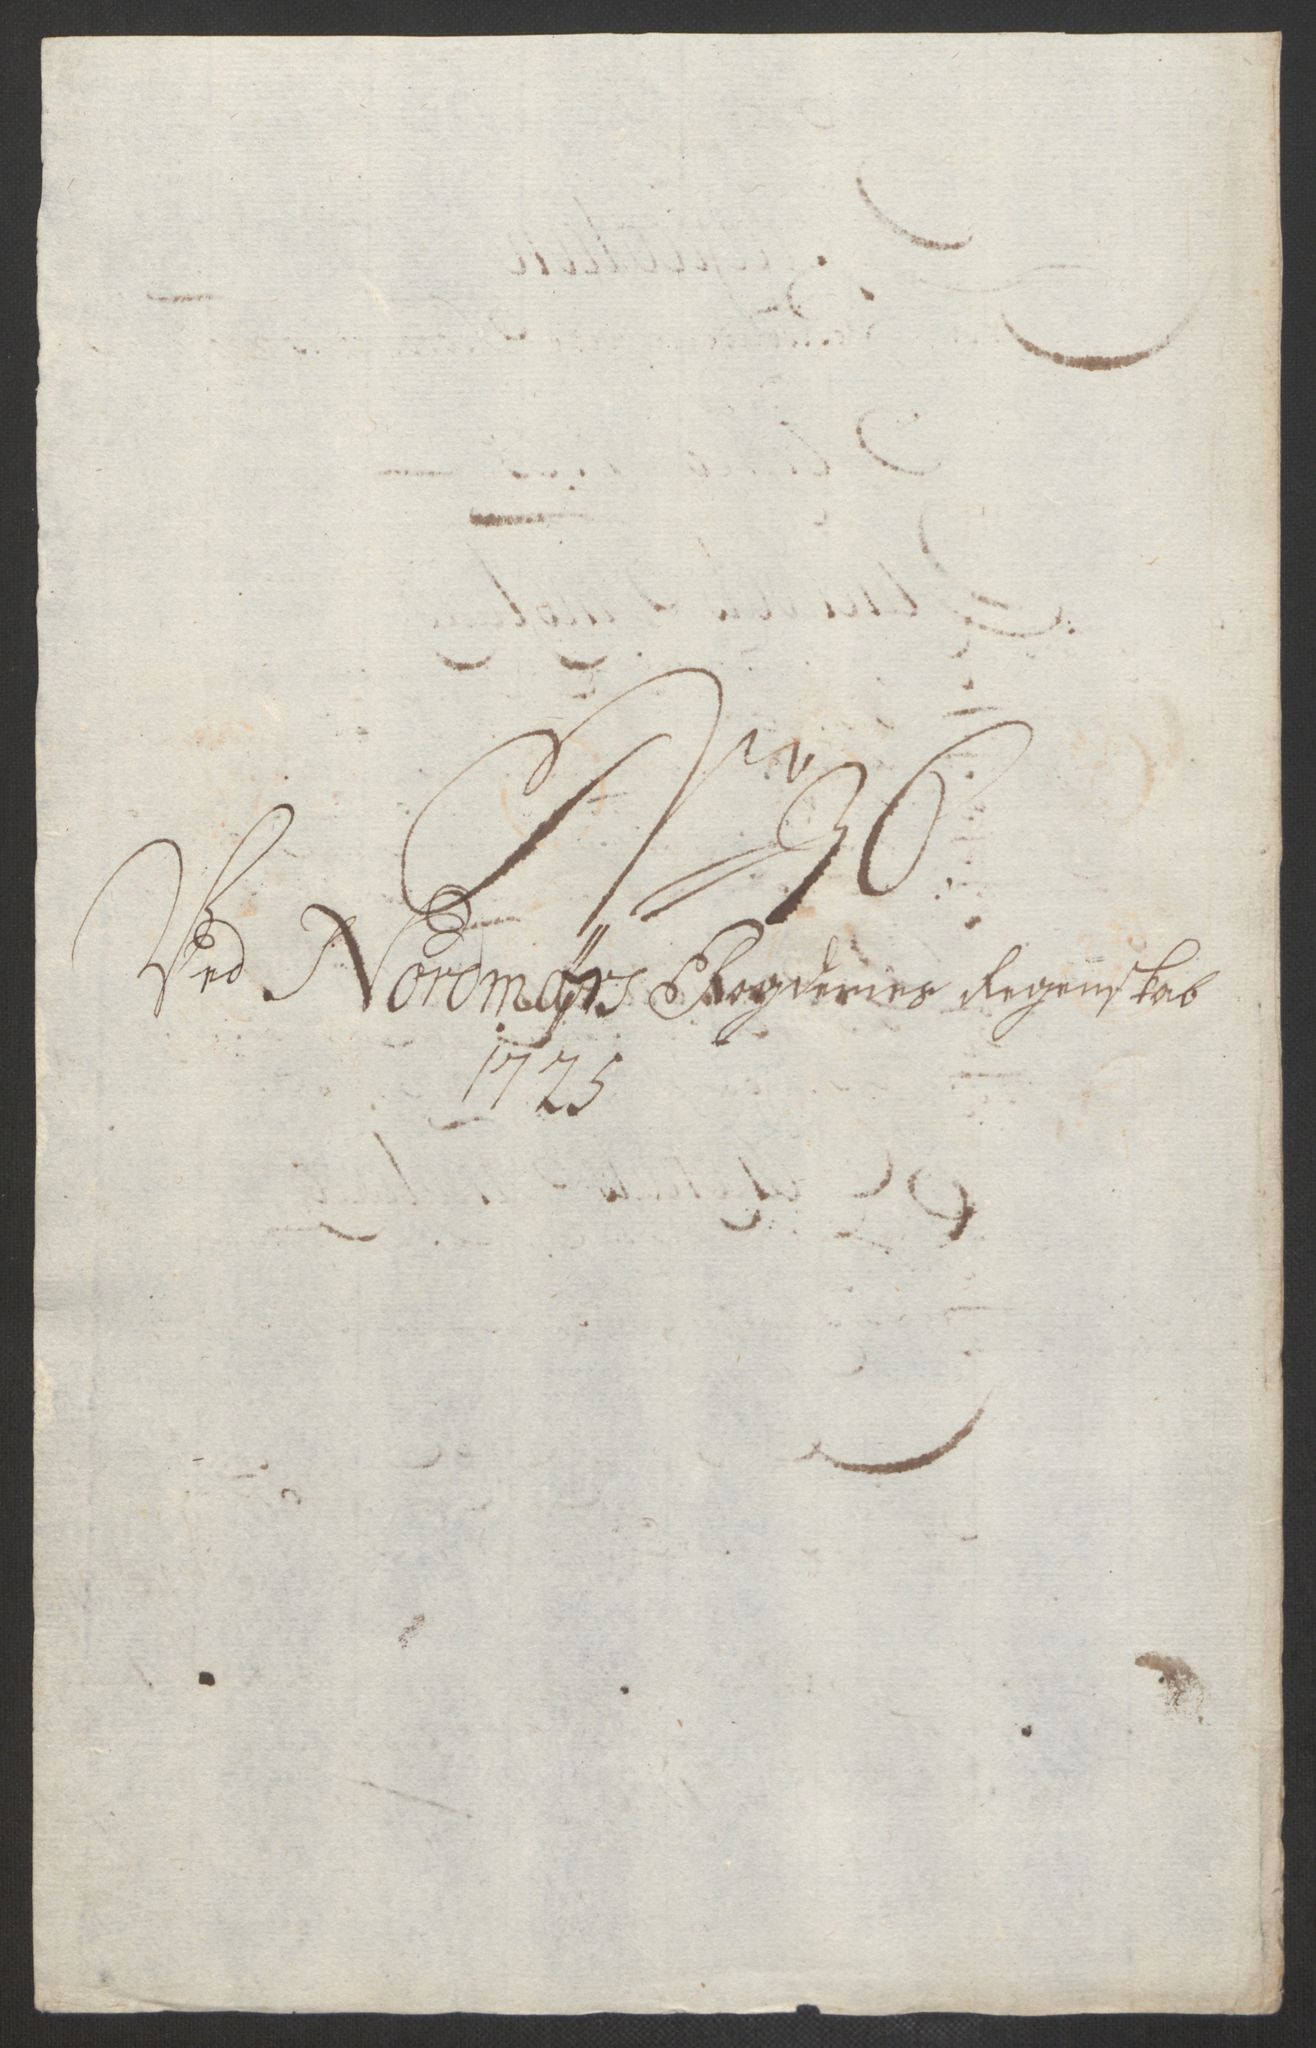 Nro 36
Ved Nordmørs Fogderies Regenskab
1725